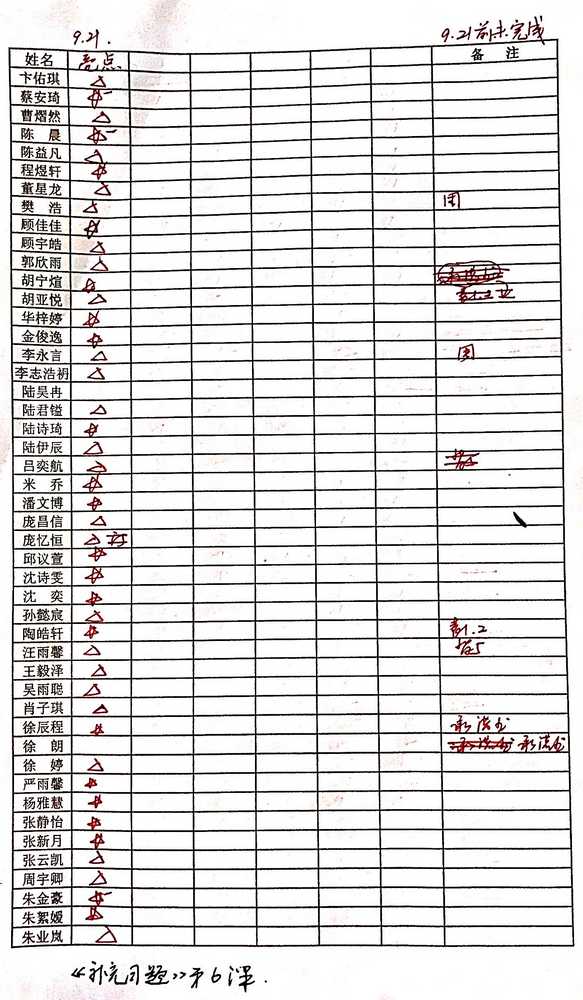 9.21. 9.21前未完成
姓名 亮点 备 注
卞佑琪 △
蔡安琦 ☆-
曹熠然 △
陈 晨 ☆-
陈益凡 △
程煜轩 ☆
董星龙 △
樊 浩 △ 周
顾佳佳 ☆
顾宇皓 △
郭欣雨 △
胡宁煊 ☆
胡亚悦 △
华梓婷 ☆
金俊逸 ☆
李永言 △
李志浩礽 △
陆昊冉
陆君镒 △
陆诗琦 ☆
陆伊辰 △
吕奕航 △
米 乔 ☆
潘文博 ☆
庞昌信 △
庞忆恒 △
邱议萱 ☆
沈诗雯 ☆
沈 奕 ☆
孙懿宸 △
陶皓轩 ☆
汪雨馨 △
王毅泽 △
吴雨聪 △
肖子琪 △
徐辰程 ☆
徐 朗
徐 婷 △
严雨馨 ☆
杨雅慧 ☆
张静怡 ☆
张新月 ☆
张云凯 △
周宇卿 △
朱金豪 ☆-
朱絮嫒 ☆
朱业岚 △
《补充习题》第6课.